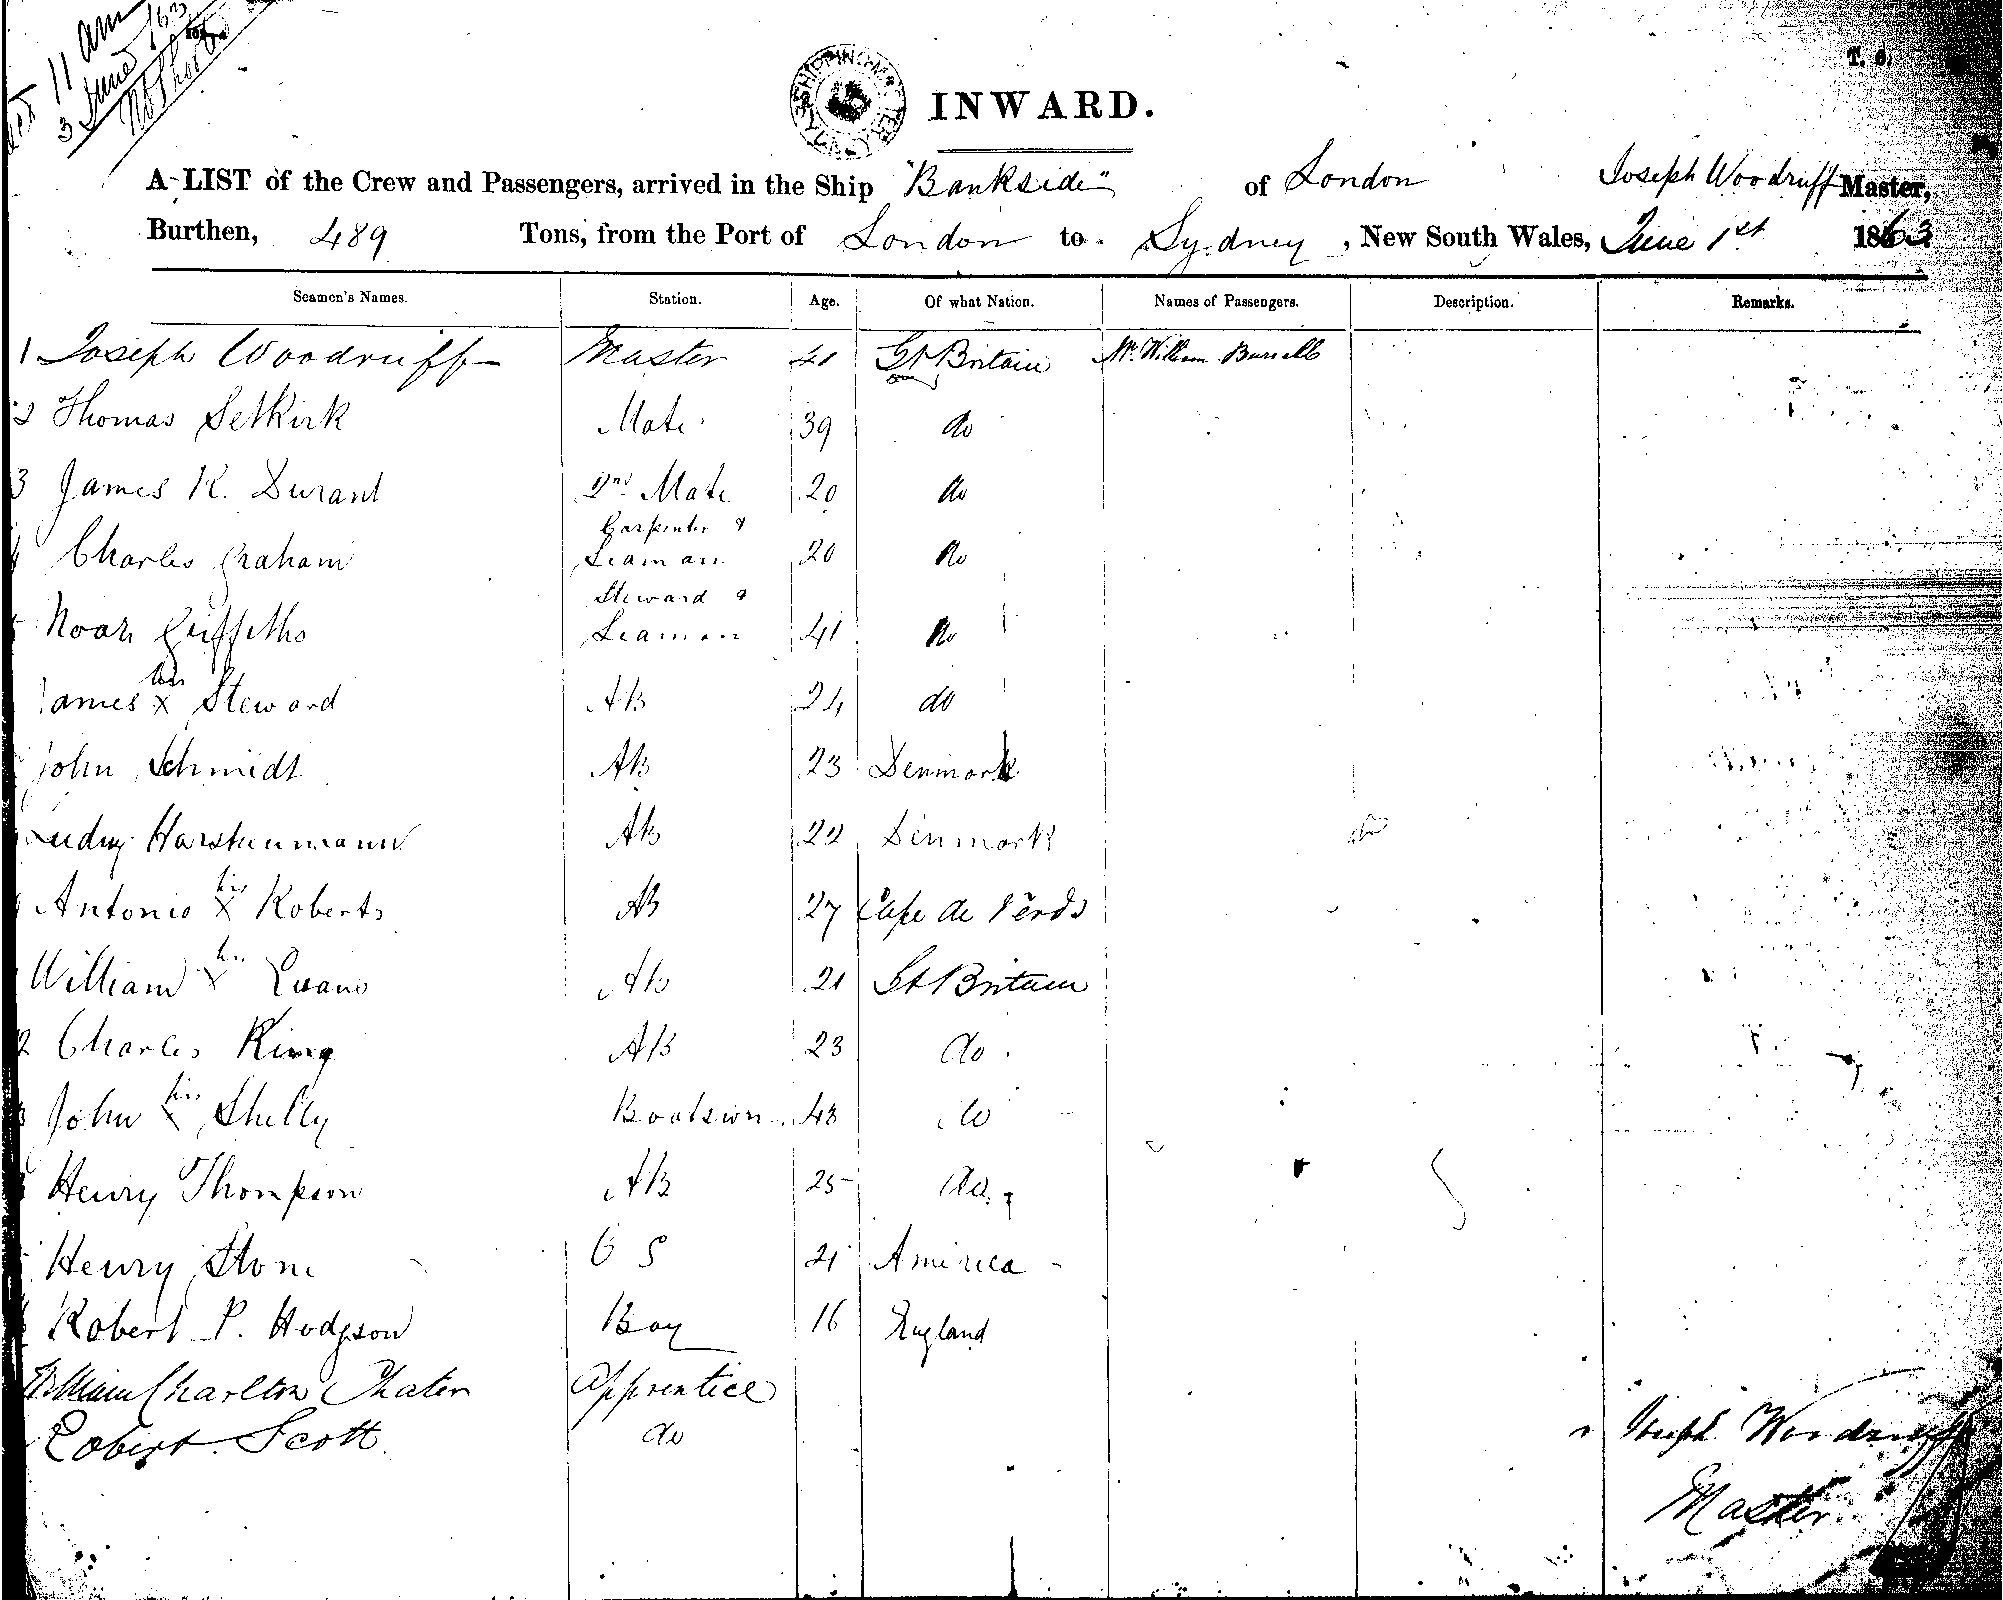 11 am
3 June /63
T. 6.
SHIPPING MASTER
INWARD.
A LIST of the Crew and Passengers, arrived in the Ship "Bankside" of London Joseph Woodruff Master,
Burthen, 489 Tons, from the Port of London to Sydney, New South Wales, June 1st 1863
Seamen's Names. Station. Age. Of what Nation. Names of Passengers. Description. Remarks.
1 Joseph Woodruff Master 41 Gt Britain Mr. William Burrell
2 Thomas Selkirk Mate 39 do
3 James R. Durant 2nd Mate 20 do
Carpenter &
Charles Graham Seaman 20 do
Steward &
Noah Griffiths Seaman 41 do
his
James X Steward AB 24 do
John Schmidt AB 23 Denmark
AB 22 Denmark
his
Antonio X Roberts AB 27 Cape de Verds
his
William X Evans AB 21 Gt Britain
Charles King AB 23 do
his
John X Shelly Boatswn 43 do
Henry Thompson AB 25 do
Henry Stone O S 21 America
Robert P. Hodgson Boy 16 England
William Charlton Chater Apprentice
Robert Scott do
Joseph Woodruff
Master